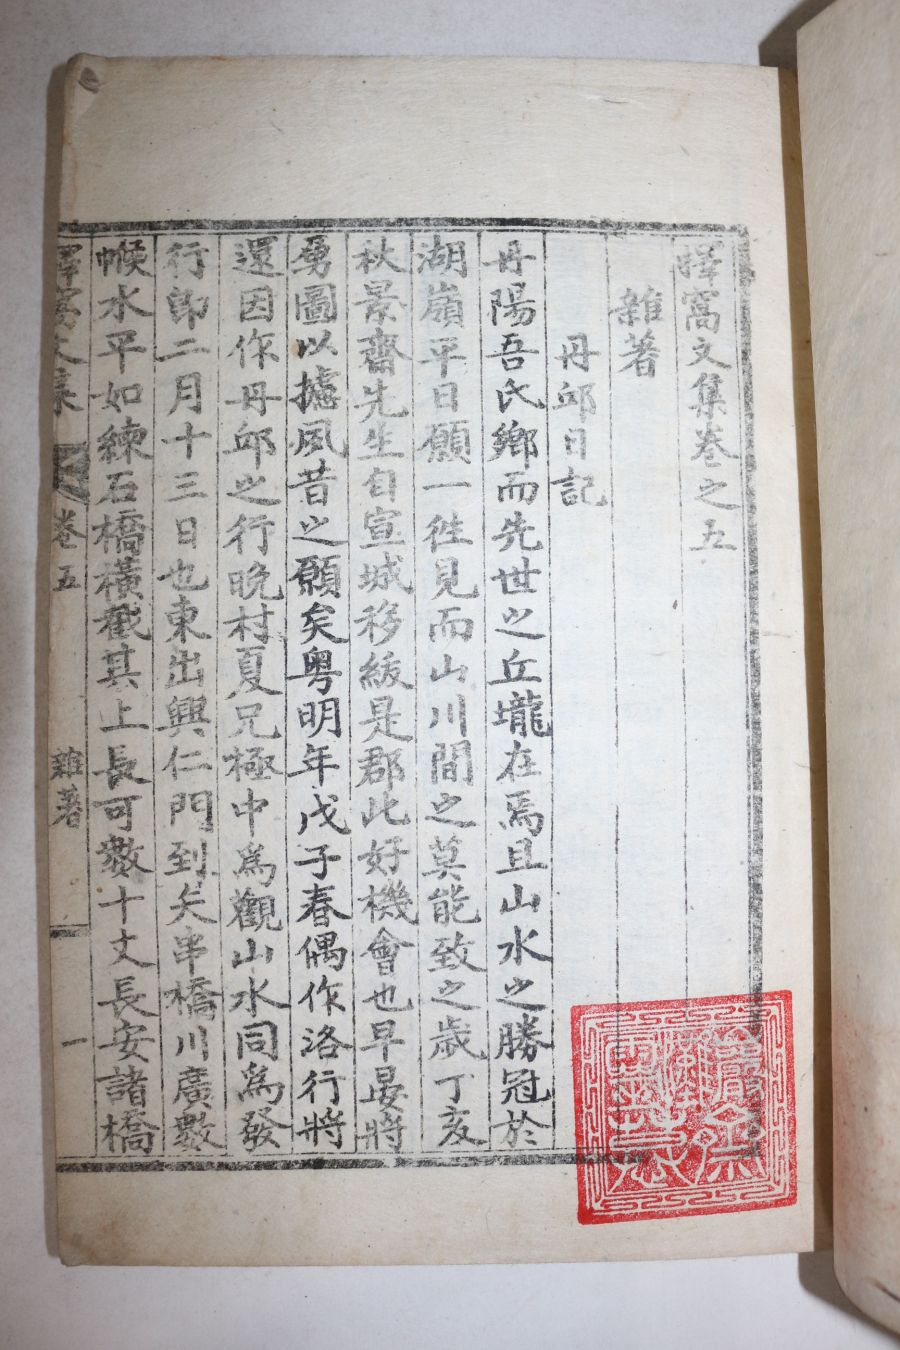 擇窩文集卷之五
雜著
丹邱日記
丹陽吾氏鄕而先世之丘壠在焉且山水之勝冠於
湖嶺平日願一徃見而山川間之莫能致之歲丁亥
秋景齋先生自宣城移紱是郡此好機會也早晏將
勇圖以攄夙昔之願矣粤明年戊子春偶作洛行將
還因作丹邱之行晩村夏兄極中爲觀山水同爲發
行卽二月十三日也東出興仁門到矢串橋川廣數
帿水平如練石橋橫截其上長可數十丈長安諸橋
擇窩文集
卷五
雜著
一